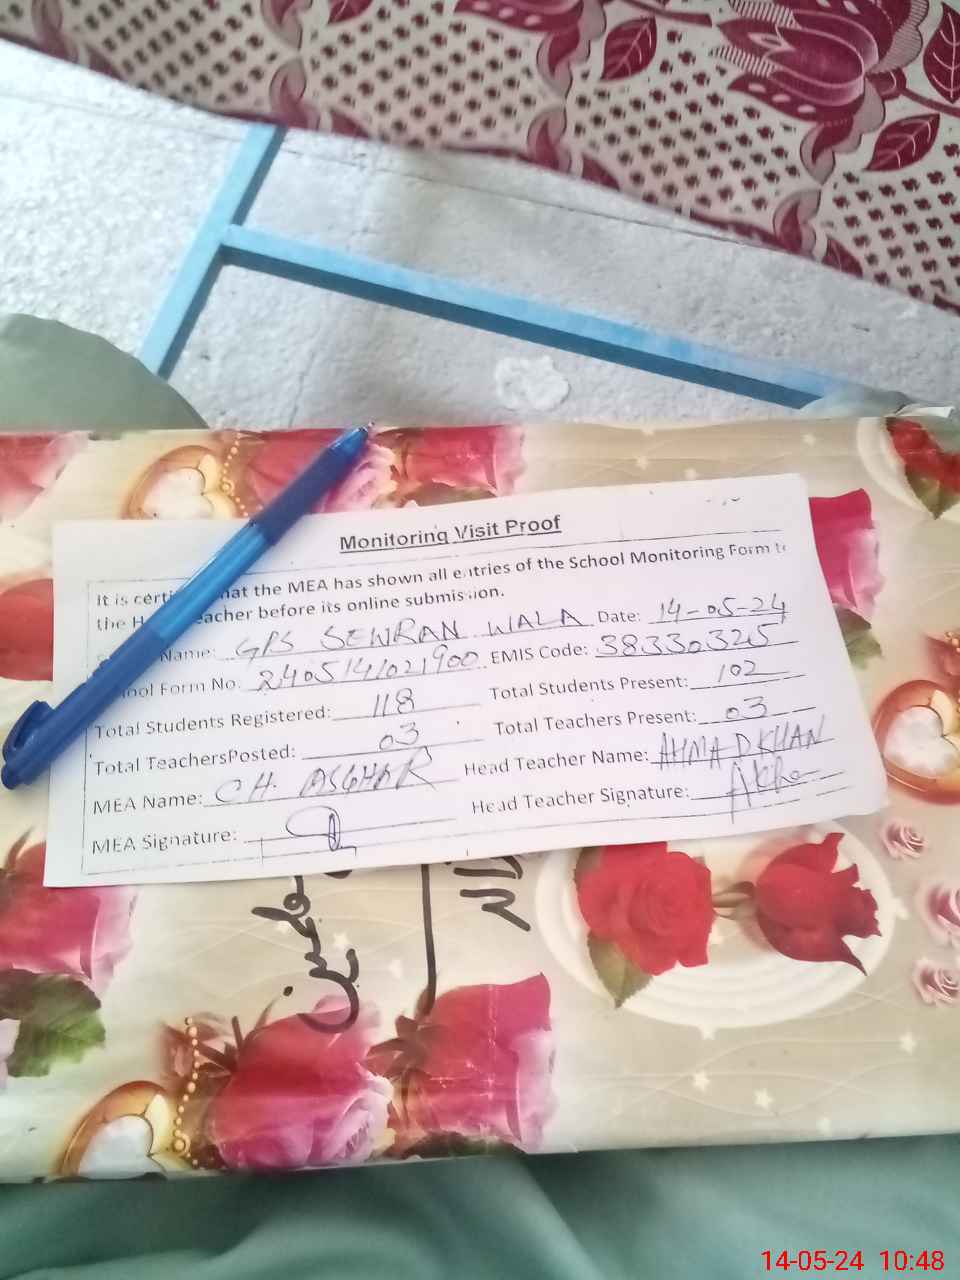 Monitoring Visit Proof
It is certi hat the MEA has shown all entries of the School Monitoring Form to
the H eacher before its online submission.
Name: GPS SEWRAN WALA Date: 14-05-24
ool Form No. 2405141021900 EMIS Code: 38330325
Total Students Registered: 118 Total Students Present: 102
Total TeachersPosted: 03 Total Teachers Present: 03
MEA Name: CH. ASGHAR Head Teacher Name: AHMAD KHAN
MEA Signature: Head Teacher Signature: AKha
14-05-24 10:48